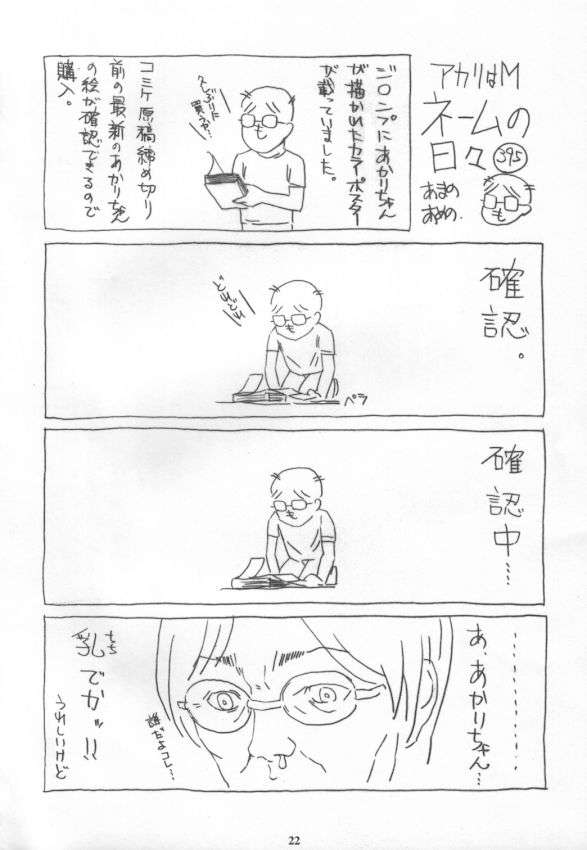 アカリはM
ネームの
日々
395
あまの
あめの.
ジャンプにあかりちゃん
が描かいたカラーポスター
が載っていました。
久しぶりに
買うや…
コミケ原稿締め切り
前の最新のあかりちゃん
の絵が確認できるので
購入。
確認。
どれどれ
ペラ
確認中……
あ、あかりちゃん…
誰だよコレ…
乳でかッ!!
ちち
うれしいけど
22